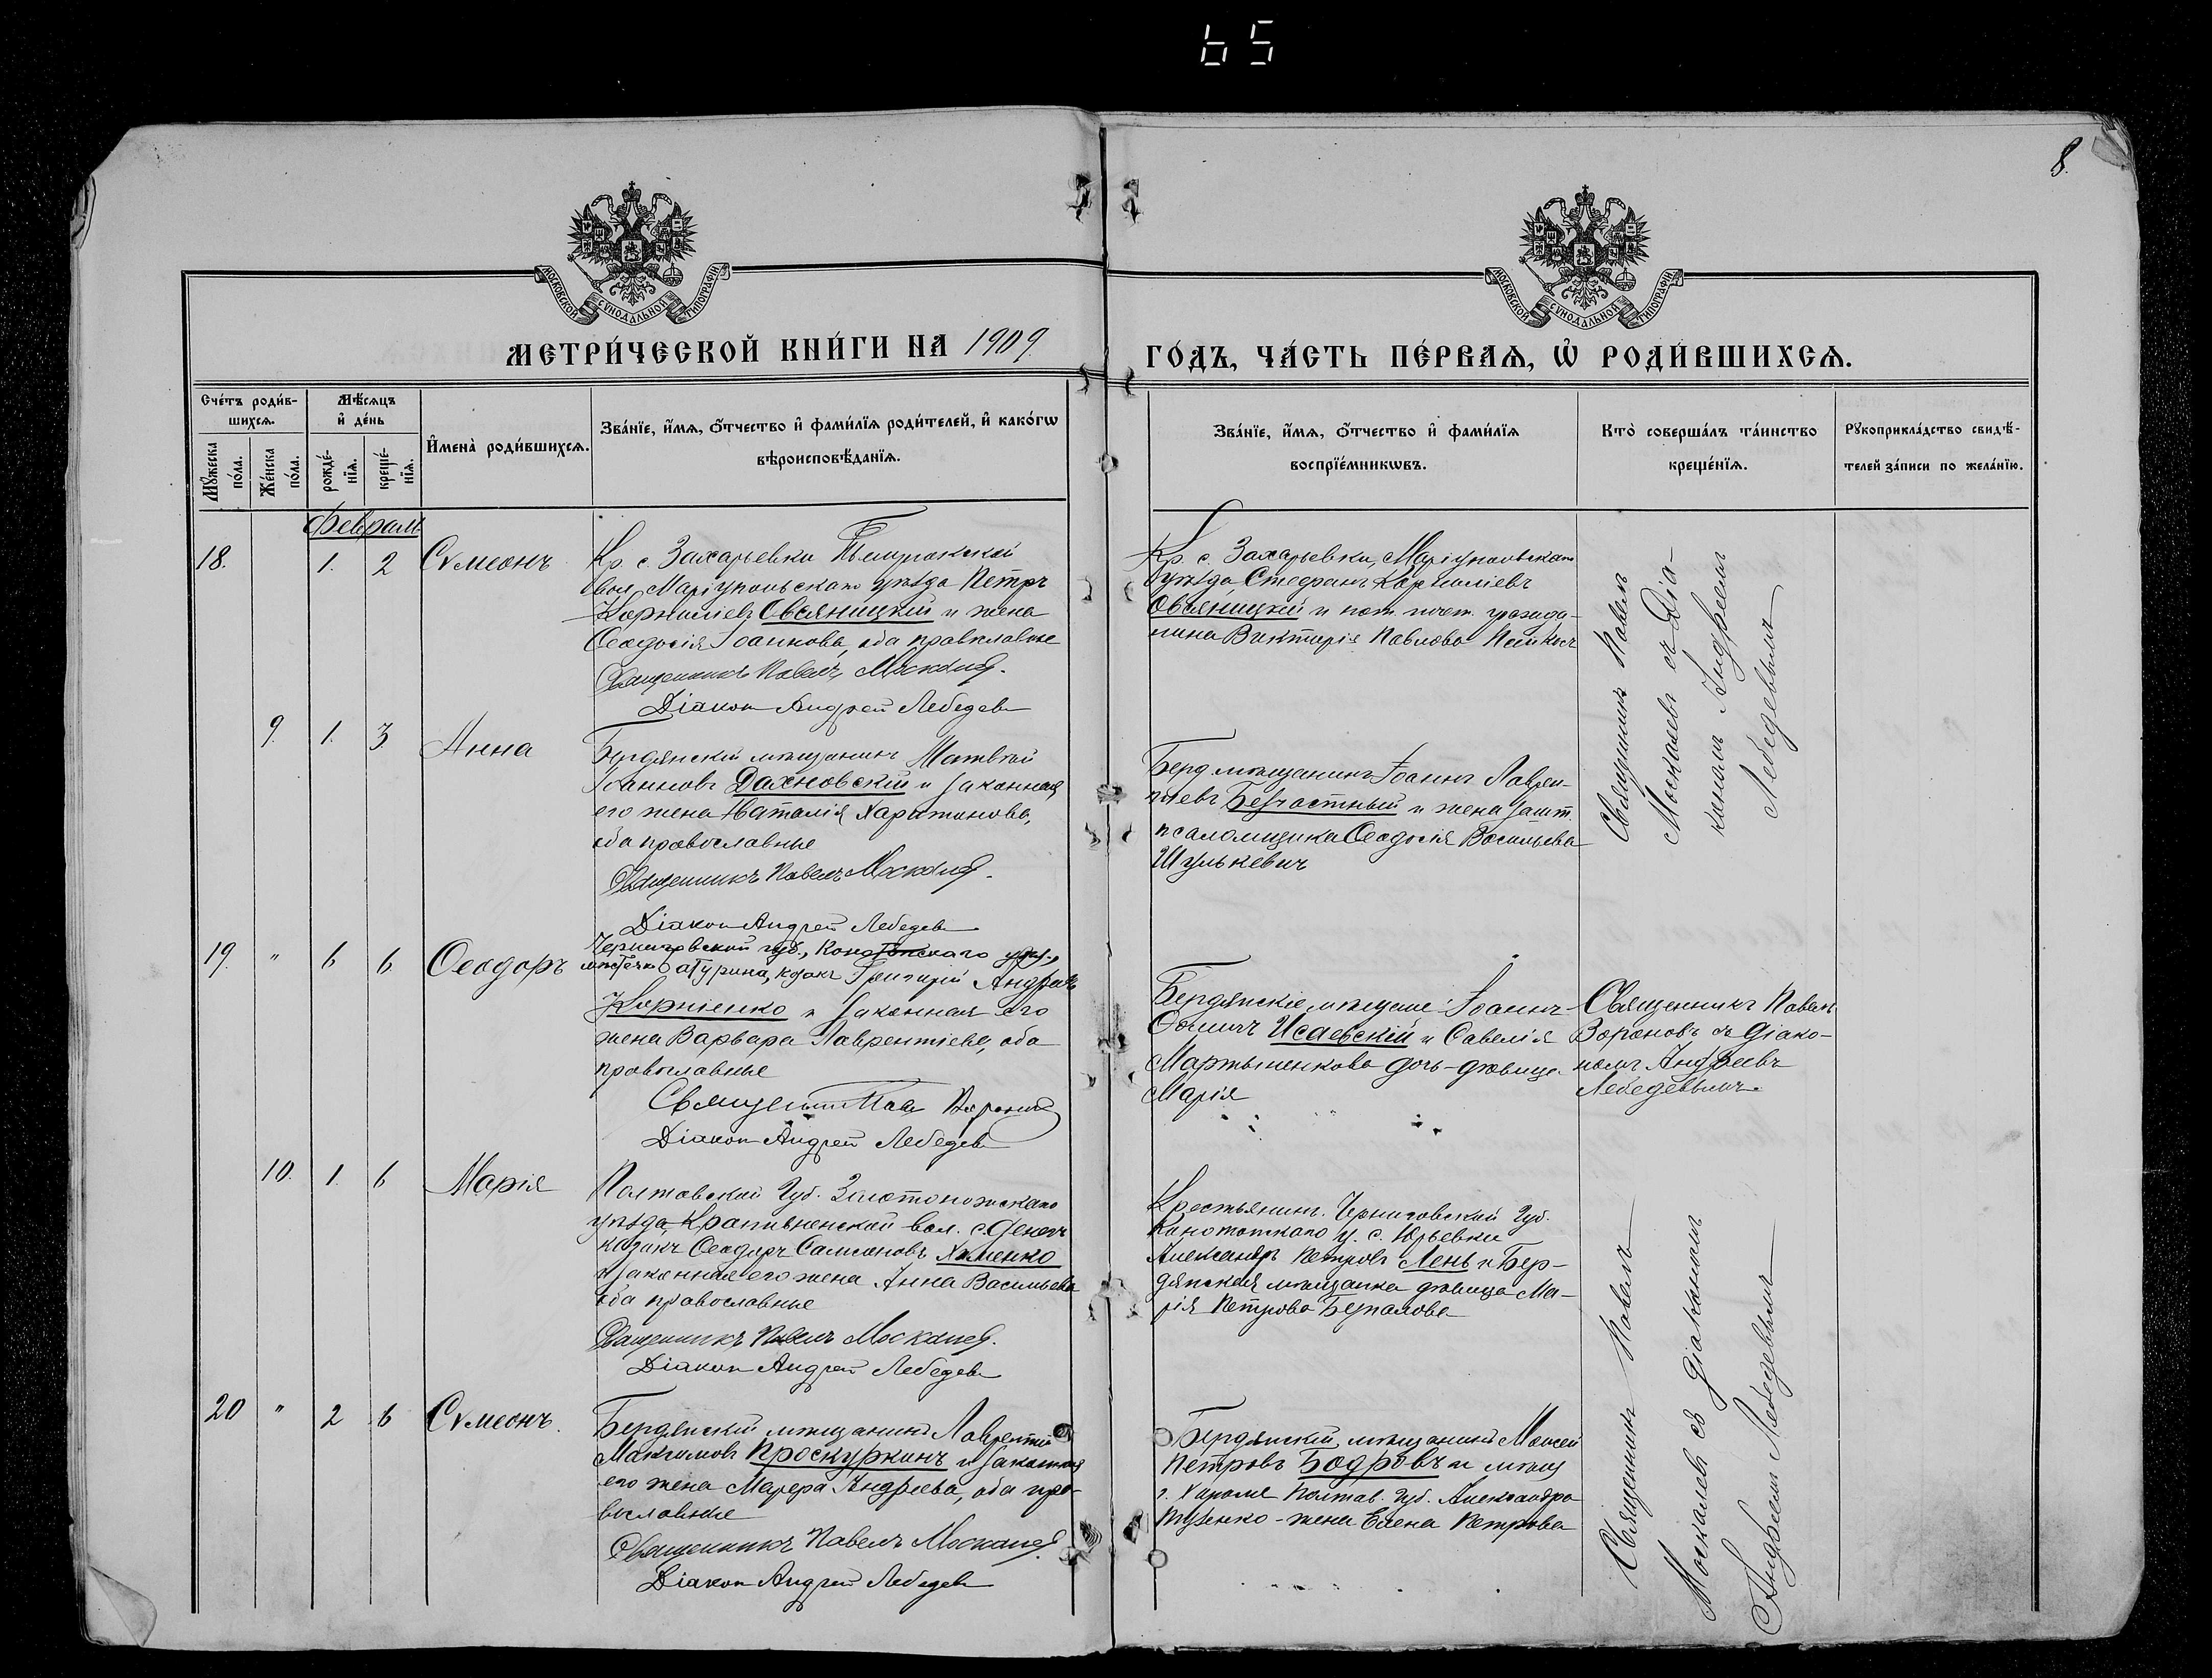 65
8.
МОСКОВСКОЙ СѴНОДАЛЬНОЙ ТИПОГРАФІИ
МОСКОВСКОЙ СѴНОДАЛЬНОЙ ТИПОГРАФІИ
МЕТРИ́ЧЕСКОЙ КНИ́ГИ НА 1909
ГО́ДЪ, ЧА́СТЬ ПЕ́РВАѦ, Ѽ РОДИ́ВШИХСѦ.
Сче́тъ роди́в-
шихсѧ.
Мꙋ́жеска по́ла.
Же́нска по́ла.
Мѣ́сѧцъ
и҆ де́нь
рожде́-
нїѧ.
креще́-
нїѧ.
И҆мена̀ роди́вшихсѧ.
Зва́нїе, и҆́мѧ, ѻ҆́тчество и҆ фами́лїѧ роди́телей, и҆ како́гѡ
вѣроисповѣ́данїѧ.
Зва́нїе, и҆́мѧ, ѻ҆́тчество и҆ фами́лїѧ
воспрїе́мникѡвъ.
Кто̀ соверша́лъ та́инство
креще́нїѧ.
Рꙋкоприкла́дство свидѣ́-
телей за́писи по жела́нїю.
Февраль
18. 1. 2 Сѵмеонъ
Кр. с. Захарьевки
вол. Маріупольскаго уѣзда Петръ
Корниліевъ Овсяницкій и жена
Ѳеодосія Іоаннова, оба православные
Священникъ Павелъ Москалевъ.
Діаконъ Андрей Лебедевъ
Кр. с. Захарьевки, Маріупольскаго
уѣзда Стефанъ Корниліевъ
Овсяницкій и пот. почет. гражда-
нина Викторія Павлова
Священникъ Павелъ
Москалевъ съ Діа-
кономъ Андреемъ
Лебедевымъ
9. 1. 3 Анна
Бердянскій мѣщанинъ Матвѣй
Іоанновъ Дахновскій и законная
его жена Наталія Харитонова,
оба православные
Священникъ Павелъ Москалевъ.
Діаконъ Андрей Лебедевъ
Берд. мѣщанинъ Іоаннъ Лаврен-
тіевъ Безчастный и жена зашт.
псаломщика Ѳеодосія Васильева
Шулькевичъ
19. " 6 6 Ѳеодоръ
Черниговской губ., Конотопскаго уѣз.,
мѣстечка Батурина, козакъ Григорій Андреевъ
Корніенко и законная его
жена Варвара Лаврентіева, оба
православные
Священникъ Павелъ Вороновъ
Діаконъ Андрей Лебедевъ
Бердянскіе мѣщане: Іоаннъ
Ѳоминъ Исаевскій и Савелія
Мартыненкова дочь-дѣвица
Марія
Священникъ Павелъ
Вороновъ съ діако-
номъ Андреемъ
Лебедевымъ.
10. 1. 6 Марія
Полтавской Губ. Золотоножскаго
уѣзда, Крапивненской вол. с.
козакъ Ѳеодоръ Самсоновъ Хименко
и законная его жена Анна Васильева
оба православные
Священникъ Павелъ Москалевъ.
Діаконъ Андрей Лебедевъ
Крестьянинъ Черниговской Губ.
Конотопскаго у. с. Юрьевки
Александръ Петровъ Лень и Бер-
дянская мѣщанка дѣвица Ма-
рія Петрова
Священникъ Павелъ
Москалевъ съ діакономъ
Андреемъ Лебедевымъ
20 " 2 6 Сѵмеонъ.
Бердянскій мѣщанинъ Лаврентій
Максимовъ Проскуркинъ и законная
его жена Марфа Андреева, оба пра-
вославные
Священникъ Павелъ Москалевъ.
Діаконъ Андрей Лебедевъ
Бердянскій мѣщанинъ Моисей
Петровъ Бодровъ и мѣщ.
г. Хороля Полтав. Губ. Александра
жена Елена Петрова